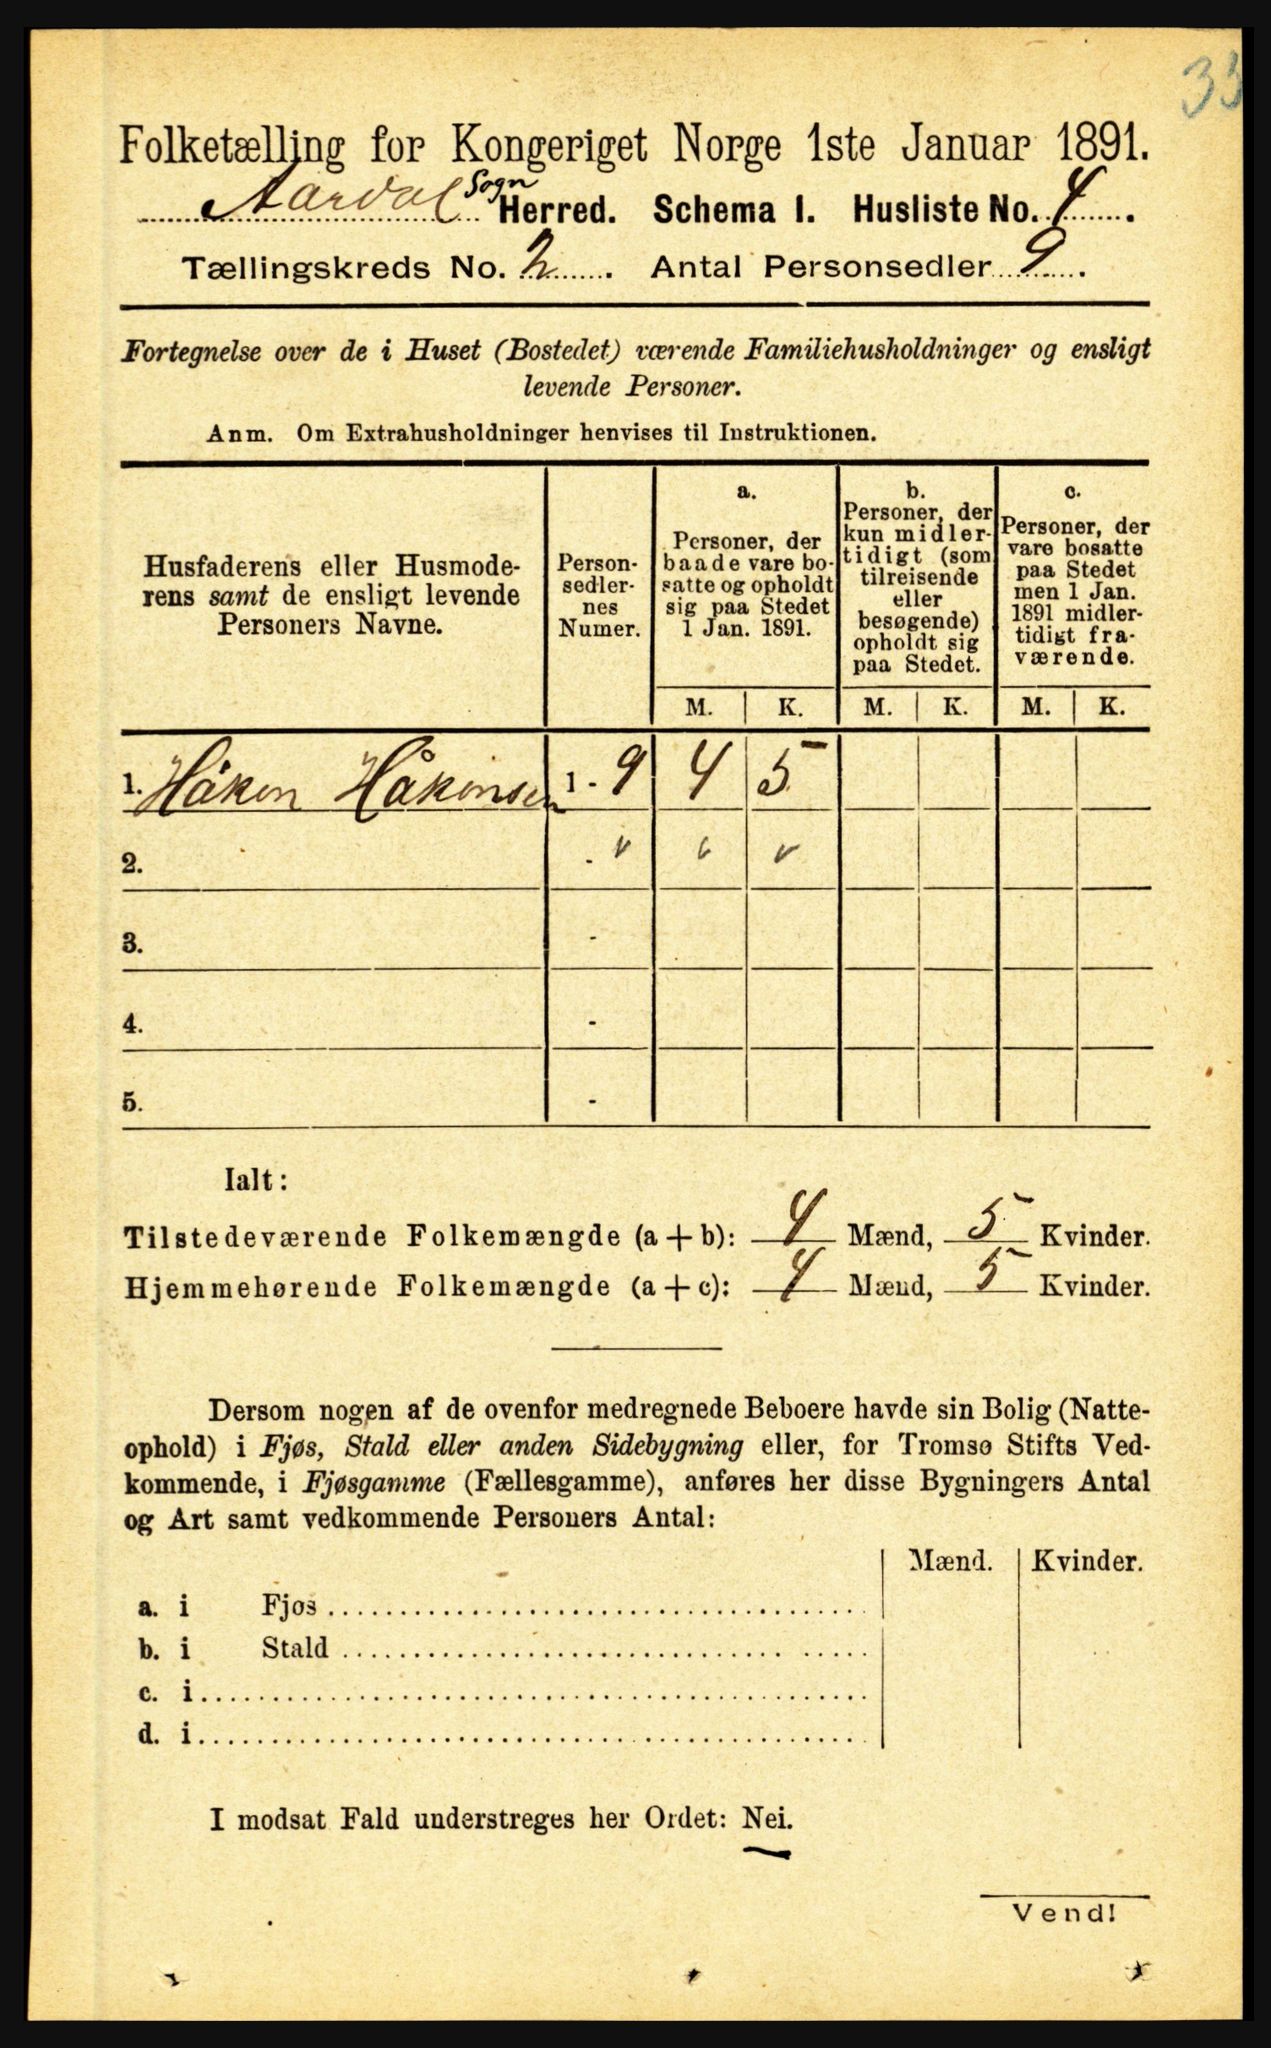 33
Folketælling for Kongeriget Norge 1ste Januar 1891.
Aardal Sogn Herred. Schema I. Husliste No. 4.
Tællingskreds No. 2. Antal Personsedler 9.
Fortegnelse over de i Huset (Bostedet) værende Familiehusholdninger og ensligt
levende Personer.
Anm. Om Extrahusholdninger henvises til Instruktionen.
Husfaderens eller Husmode-
rens samt de ensligt levende
Personers Navne.
Person-
sedler-
nes
Numer.
a.
Personer, der
baade vare bo-
satte og opholdt
sig paa Stedet
1 Jan. 1891.
b.
Personer, der
kun midler-
tidigt (som
tilreisende
eller
besøgende)
opholdt sig
paa Stedet.
c.
Personer, der
vare bosatte
paa Stedet
men 1 Jan.
1891 midler-
tidigt fra-
værende.
M. K. M. K. M. K.
1. Håkon Håkonsen 1 - 9 4 5
2. -
3. -
4. -
5. -
Ialt:
Tilstedeværende Folkemængde (a + b): 4 Mænd, 5 Kvinder.
Hjemmehørende Folkemængde (a + c): 4 Mænd, 5 Kvinder.
Dersom nogen af de ovenfor medregnede Beboere havde sin Bolig (Natte-
ophold) i Fjøs, Stald eller anden Sidebygning eller, for Tromsø Stifts Ved-
kommende, i Fjøsgamme (Fællesgamme), anføres her disse Bygningers Antal
og Art samt vedkommende Personers Antal:
Mænd. Kvinder.
a. i Fjøs
b. i Stald
c. i
d. i
I modsat Fald understreges her Ordet: Nei.
Vend!